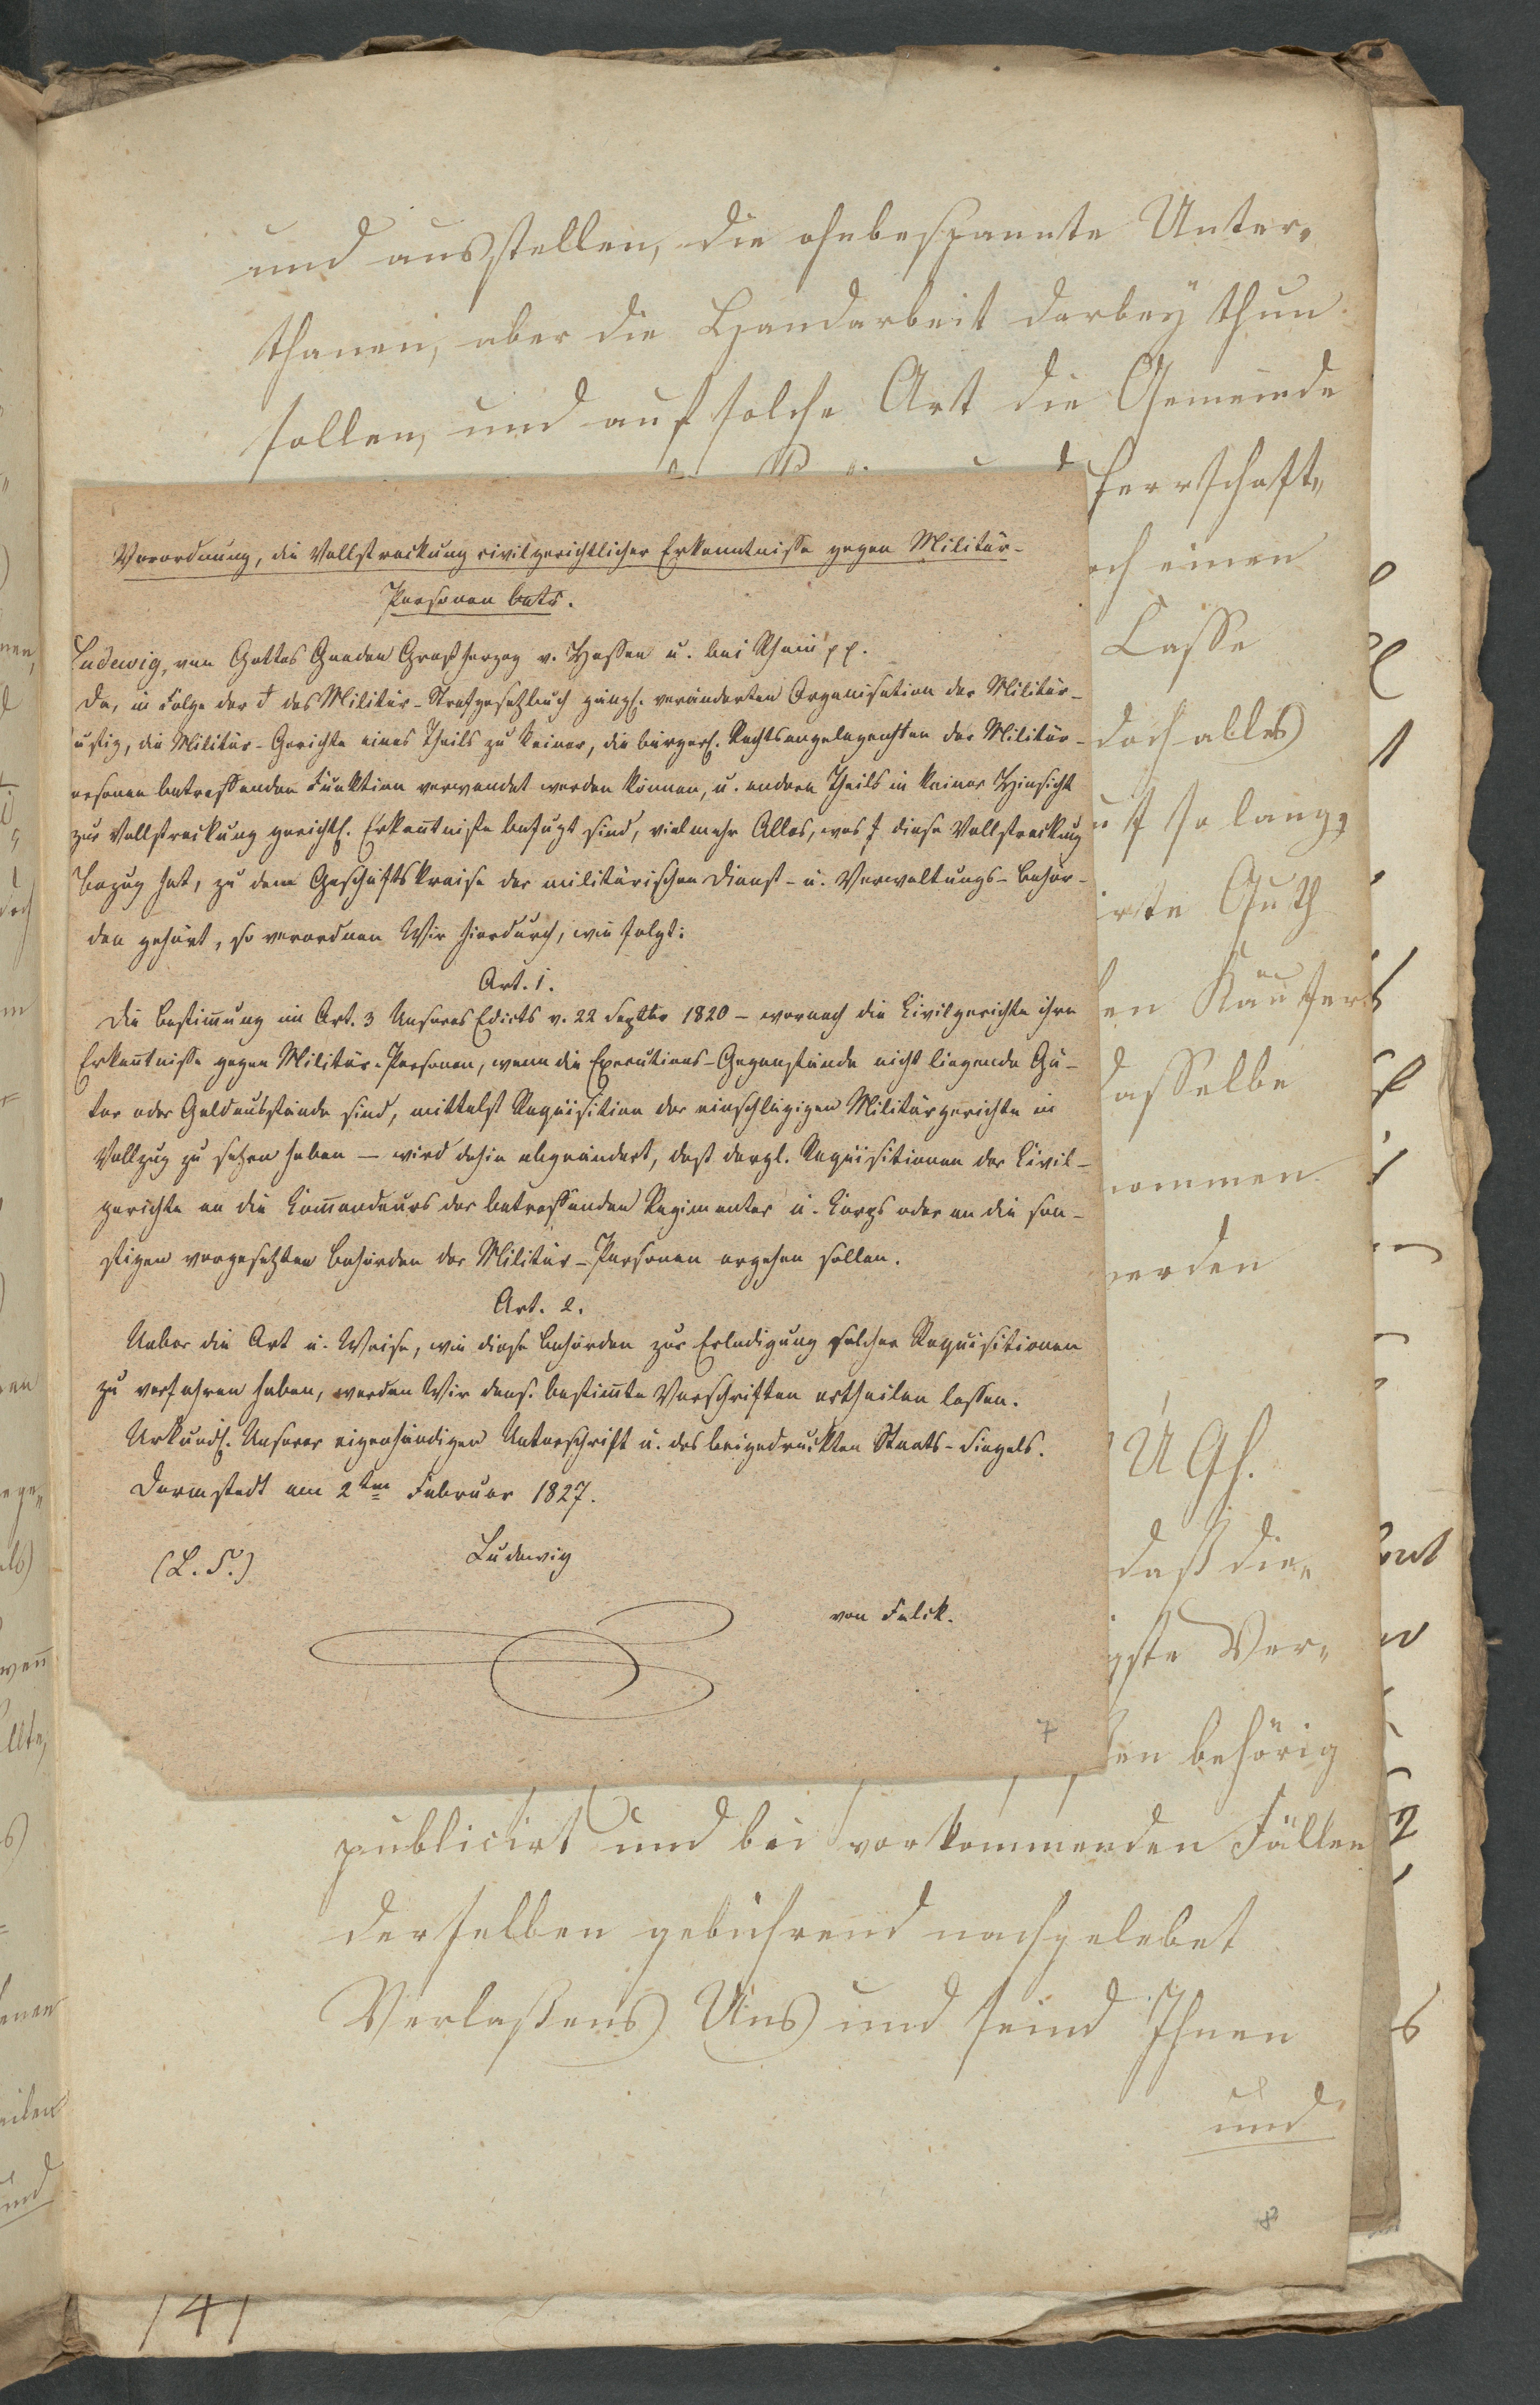 und ausstellen, die ohnbespannte Unter„
thanen, aber die Handarbeit darbey thun
sollen, und auf solche Art die Gemeinde
herrschaft„
och einen
Casse
doch alles
uf so lang,
irte Guth
en Käufers
dasselbe
nommen
werden
UGh.
daß die„
igste Ver„
en behörig
publicirt und bei vorkommenden Fällen
derselben gebührend nachgelebet
Verlaßens Uns und seind Ihnen
und
8
Verordnung, die Vollstreckung civilgerichtlicher Erkenntnisse gegen Militär-
Personen betr.
Ludewig, von Gottes Gnaden Großherzog v. Hessen u. bei Rhein pp.
Da, in Folge der d das Militär-Strafgesetzbuch gänzl. veränderten Organisation der Militär-
ustiz, die Militär-Gerichte eines Theils zu keiner, die bürgerl. Rechtsangelegenhten der Militär-
ersonen betreffenden Funktion verwendet werden können, u. andern Theils in keiner Hinsicht
zur Vollstreckung gerichtl. Erkentnisse befugt sind, vielmehr Alles, was f diese Vollstreckung
Bezug hat, zu dem Geschäftskreise der militärischen Dienst- u. Verwaltungs-Behör-
den gehört, so verordnen Wir hierdurch, wie folgt:
Art. 1.
Die Bestimung im Art. 3 Unseres Edicts v. 22 Septbr 1820 – wornach die Civilgerichte ihre
Erkentnisse gegen Militär-Personen, wenn die Executions-Gegenstände nicht liegende Gü-
ter oder Geldausstände sind, mittelst Requisition der einschlägigen Militärgerichte in
Vollzug zu setzen haben – wird dahin abgeändert, daß dergl. Requisitionen der Civil-
gerichte an die Comandeurs der betreffenden Regimenter u. Corps oder an die son-
stigen vorgesetzten Behörden der Militär-Personen ergehen sollen.
Art. 2.
Ueber die Art u. Weise, wie diese Behörden zur Erledigung solcher Requisitionen
zu verfahren haben, werden Wir dens. bestimte Vorschriften ertheilen lassen.
Urkundl. Unserer eigenhändigen Unterschrift u. des beigedruckten Staats-Siegels.
Darmstadt am 2ten Februar 1827.
(L. S.) Ludewig
von Falck.
7
141